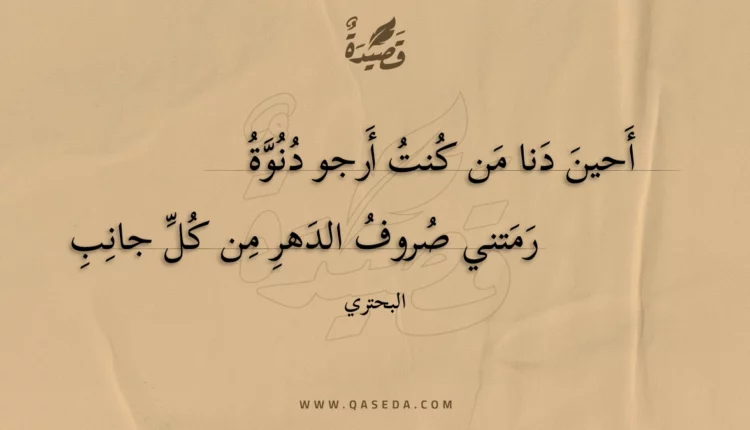 قَصِيدَةٌ
أَحينَ دَنا مَن كُنتُ أَرجو دُنُوَّةُ
رَمَتني صُروفُ الدَهرِ مِن كُلِّ جانِبِ
البحتري
WWW.QASEDA.COM